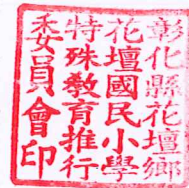 彰化縣花壇鄉
花壇國民小學
特殊教育推行
委員會印